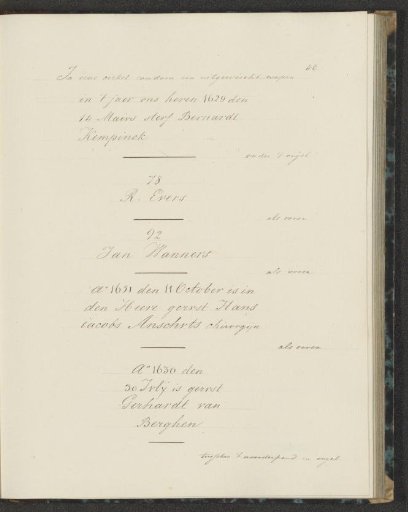 In een cirkel rondom een uitgewischt wapen
in 't jaer ons heren 1629 den
14 Maius sterf Bernardt
Kempinck
onder 't orgel
78
R. Evers
als voren
92
Jan Wanners
als voren
Ao 1631 den 11 October is in
den Heere gerust Hans
Iacobs Anschuts chirurgijn
als voren
Ao 1630 den
30 Iulij is gerust
Gerhardt van
Berghen
tusschen en orgel